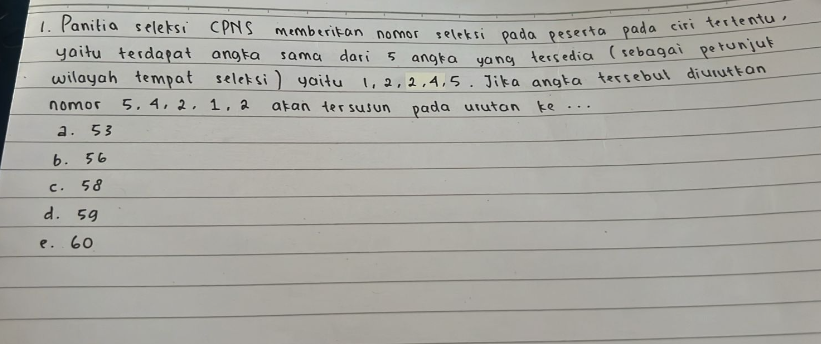 1. Panitia seleksi CPNS memberikan nomor seleksi pada peserta pada ciri tertentu,
yaitu terdapat angka sama dari 5 angka yang tersedia (sebagai petunjuk
wilayah tempat seleksi) yaitu 1, 2, 2, 4, 5. Jika angka tersebut diurutkan
nomor 5, 4, 2, 1, 2 akan tersusun pada urutan ke ...
a. 53
b. 56
c. 58
d. 59
e. 60